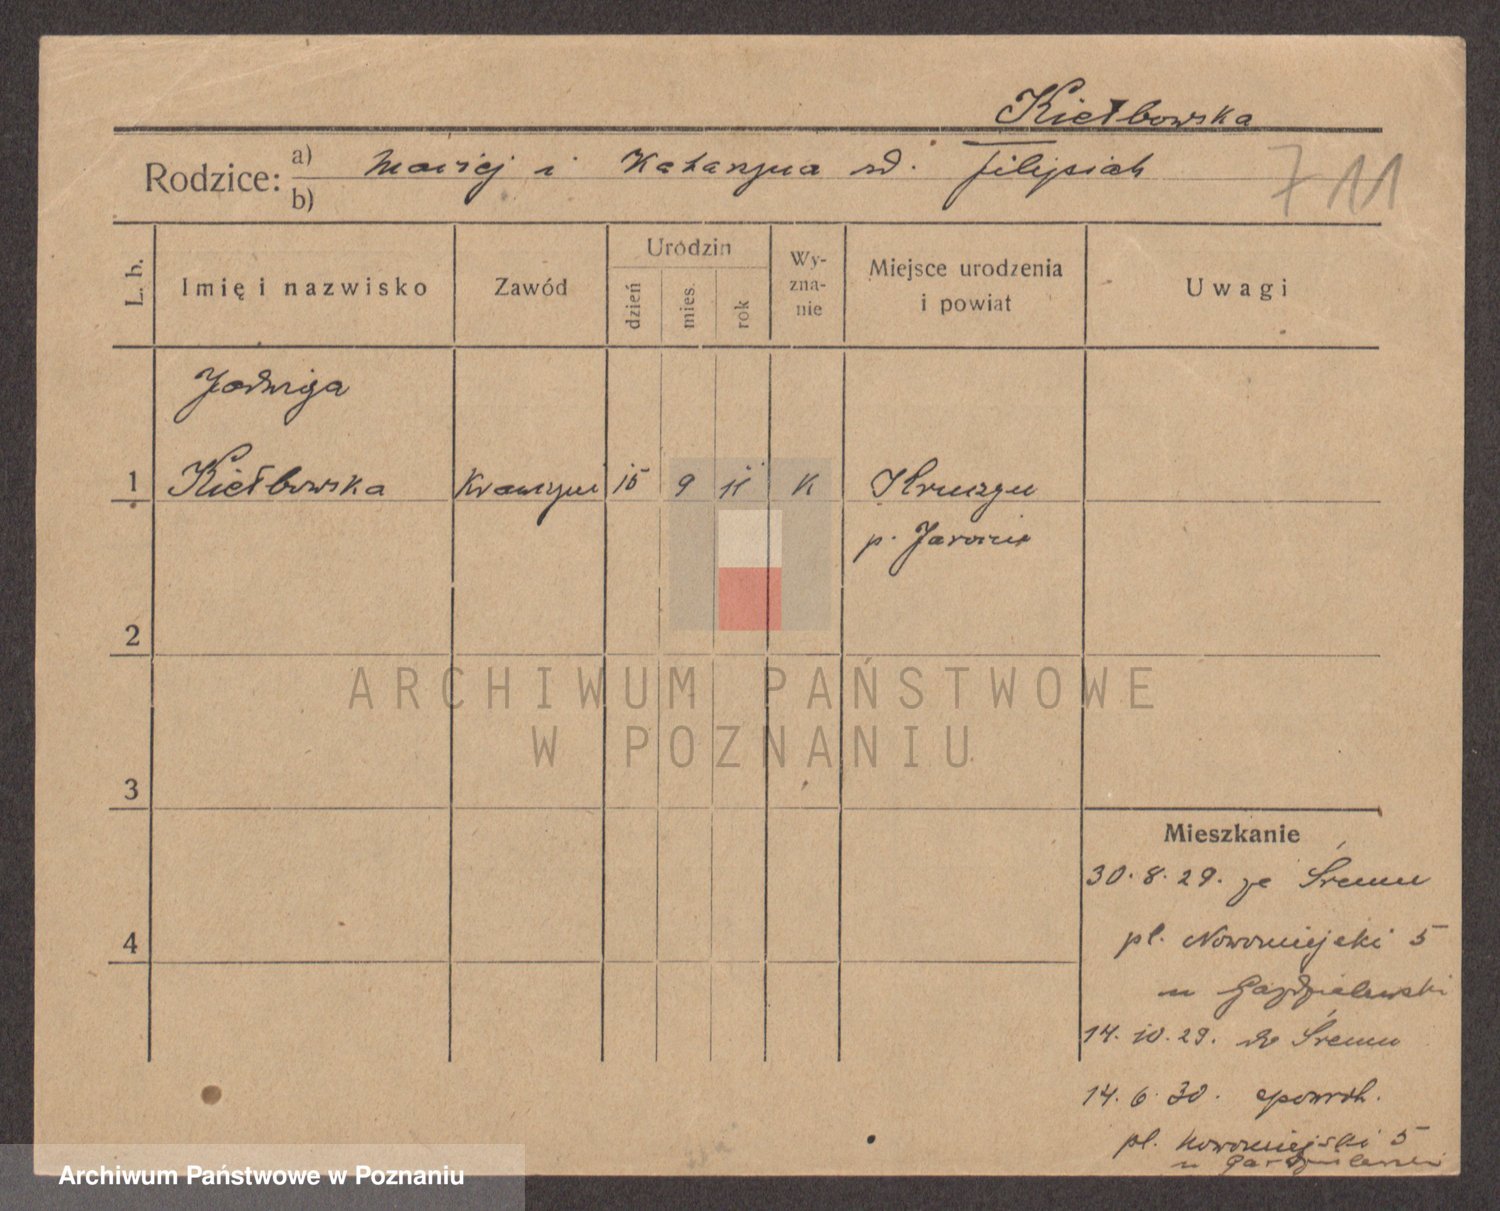 Kiełbowska
Rodzice: a) Maciej i Katarzyna zd. Filipiak
b)
711
L. b.
Imię i nazwisko
Zawód
Urodzin
dzień
mies.
rok
Wy-
zna-
nie
Miejsce urodzenia
i powiat
Uwagi
Jadwiga
1 Kiełbowska Krawczyni 15 9 11 K
p. Jarocin
2
3
4
ARCHIWUM PAŃSTWOWE
W POZNANIU
Mieszkanie
30.8.29. ze Śremu
pl. Nowomiejski 5
u Gazdzielewski
14.10.29. do Śremu
14.6.30. spowrot.
pl. Nowomiejski 5
Archiwum Państwowe w Poznaniu